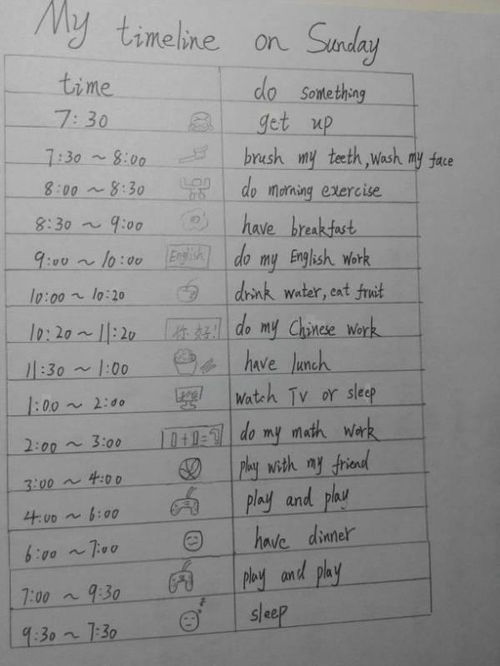 My timeline on Sunday
time do something
7:30 get up
7:30 ~ 8:00 brush my teeth, wash my face
8:00 ~ 8:30 do morning exercise
8:30 ~ 9:00 have breakfast
9:00 ~ 10:00 English do my English work
10:00 ~ 10:20 drink water, eat fruit
10:20 ~ 11:20 你好! do my Chinese work
11:30 ~ 1:00 have lunch
1:00 ~ 2:00 watch TV or sleep
2:00 ~ 3:00 0+0=? do my math work
3:00 ~ 4:00 play with my friend
4:00 ~ 6:00 play and play
6:00 ~ 7:00 have dinner
7:00 ~ 9:30 play and play
9:30 ~ 7:30 sleep